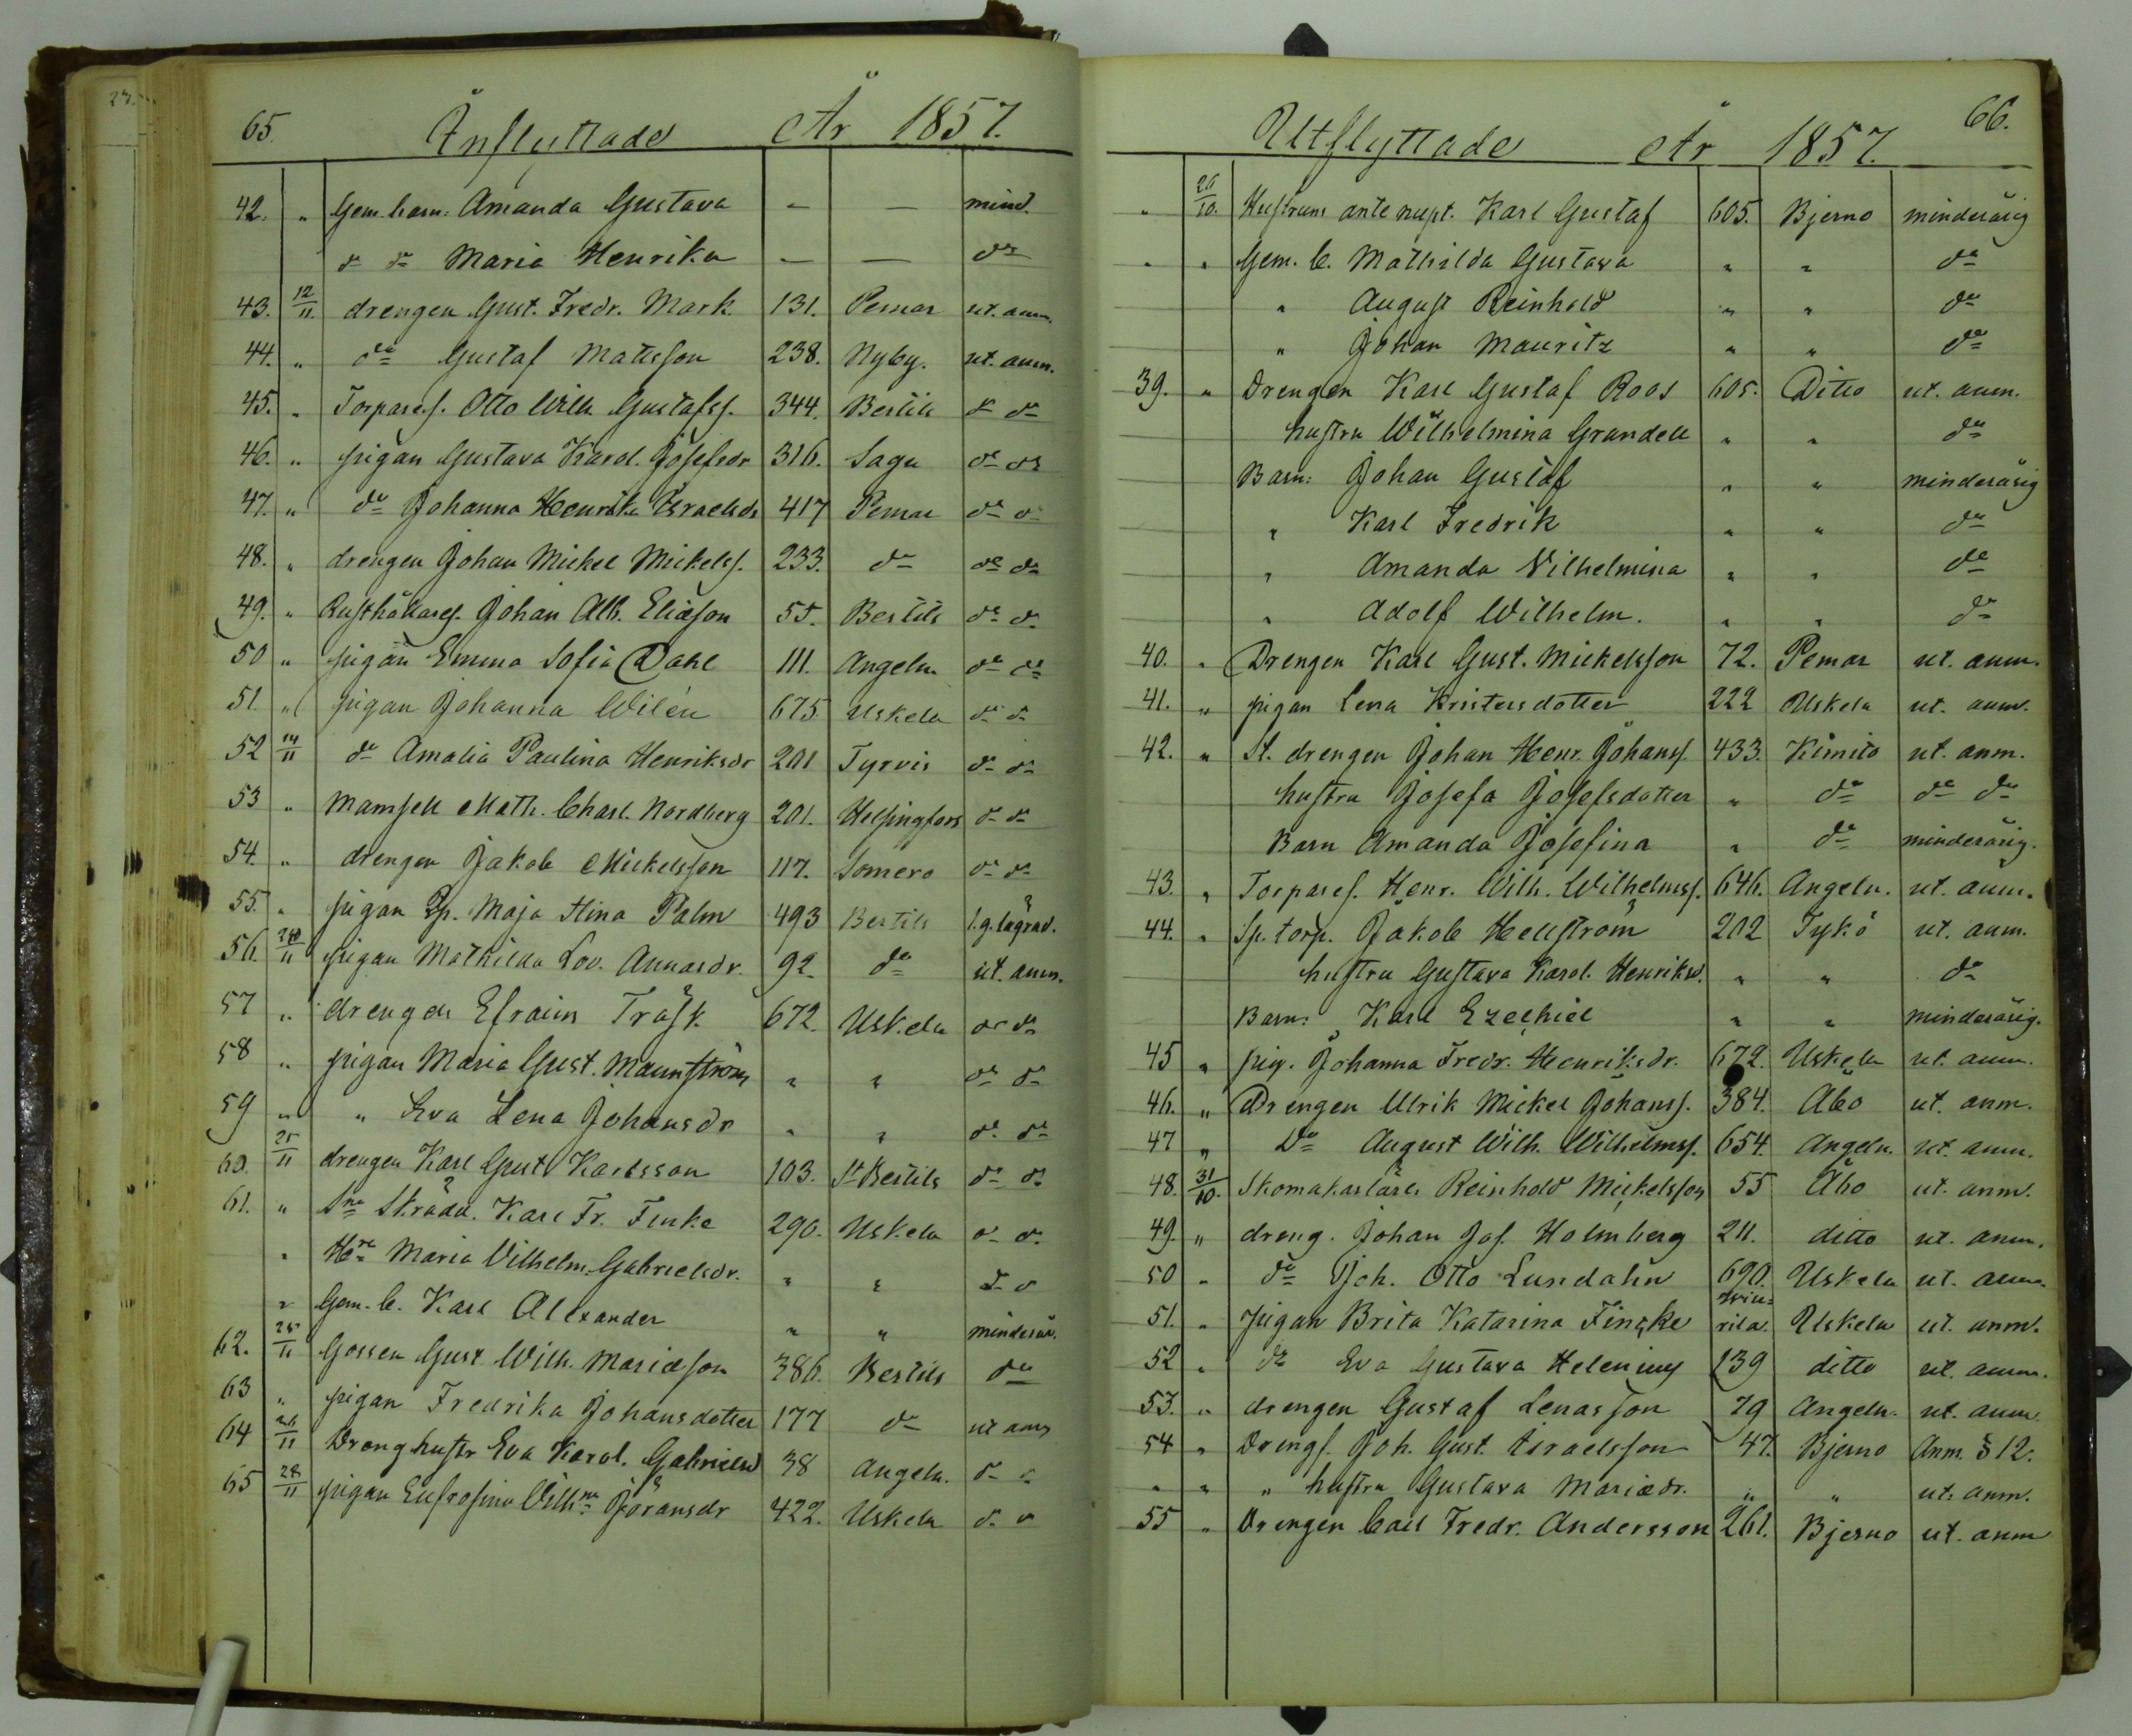 65. Inflyttade År 1857.
42. " Gem. barn: Amanda Gustava — — mind.
d:o d:o Maria Henrika — — d:o
43. 12/11. drengen Gust. Fredr. Mark 131. Pemar ut. anm.
44. " d:o Gustaf Matsson 238. Nyby. ut. anm.
45. " Torpares. Otto Wilh. Gustafss. 344. Bertils d:o d:o
46. " pigan Gustava Karol. Josefsdr 316. Sagu d:o d:o
47. " d:o Johanna Henrika Israelsdr 417 Pemar d:o d:o
48. " drengen Johan Mickel Mickelss. 233. d:o d:o d:o
49. " Rusthållares. Johan Alb. Eliæson 55. Bertils d:o d:o
50 " pigan Emma Sofia Dahl 111. Angeln. d:o d:o
51. " pigan Johanna Wilén 675 Uskela d:o d:o
52 14/11 d:o Amalia Paulina Henriksdr 201 Tyrvis d:o d:o
53 " Mamsell Math. Charl. Nordberg 201. Helsingfors d:o d:o
54. " drengen Jakob Mickelsson 117. Somero d:o d:o
55. " pigan Maja Stina Palm 493 Bertils l.g. lägrad.
56. 24/11 pigan Mathilda Lov. Annasdr. 92. d:o ut. anm.
57 " drengen Efraim Träsk 672. Uskela d:o d:o
58 " pigan Maria Gust. Maunström " " d:o d:o
59 " " Eva Lena Johansdr " " d:o d:o
60. 25/11 drengen Karl Gust. Karlsson 103. S:t Bertils d:o d:o
61. " Karl Fr. Finke 290. Uskela d:o d:o
" H:n Maria Vilhelm. Gabrielsdr. " " d:o d:o
" Gem. b. Karl Alexander " " minderår.
62. 25/11 Gossen Gust Wilh. Mariæson 386. Bertils d:o
63 " pigan Fredrika Johansdotter 177 d:o ut anm
64 26/11 Drenghustr Eva Karol. Gabrielsd 38 Angeln. d:o d:o
65 28/11 pigan Eufrosina Vilh:na Göransdr 422. Uskela d:o d:o
Utflyttade År 1857. 66.
" 26/10. Hustruns ante nupt. Karl Gustaf 605. Bjerno minderårig
" " Gem. b. Mathilda Gustava " " d:o
" August Reinhold " " d:o
" Johan Mauritz " " d:o
39. " Drengen Karl Gustaf Roos 605. Ditto ut. anm.
hustru Wilhelmina Grandell " " d:o
Barn: Johan Gustaf " " minderårig
" Karl Fredrik " " d:o
" Amanda Vilhelmina " " d:o
" Adolf Wilhelm. " " d:o
40. " Drengen Karl Gust. Mickelsson 72. Pemar ut. anm.
41. " pigan Lena Kristersdotter 222 Uskela ut. anm.
42. " St. drengen Johan Henr. Johanss. 433. Kimito ut. anm.
hustru Josefa Josefsdotter " d:o d:o d:o
Barn Amanda Josefina " d:o minderårig.
43. " Torpares. Henr. Wilh. Wilhelmss. 646. Angeln. ut. anm.
44. " Sp. torp. Jakob Hellström 202 Tykö ut. anm.
hustru Gustava Karol. Henriksd. " " d:o
Barn: Karl Ezechiel " " minderårig.
45 " pig. Johanna Fredr. Henriksdr. 672. Uskela ut. anm.
46. " Drengen Ulrik Mickel Johanss. 384. Åbo ut. anm.
47 " D:o August Wilh. Wilhelmss. 654. Angeln. ut. anm.
48. 31/10. Skomakarlärl. Reinhold Mickelsson 55 Åbo ut. anm.
49. " dreng. Johan Jos. Holmberg 211. ditto ut. anm.
50 " d:o Joh. Otto Lundahn 690. Uskela ut. anm.
51. " pigan Brita Katarina Fincke Uskela ut. anm.
52 " d:o Eva Gustava Helenius 139 ditto ut. anm.
53. " drengen Gustaf Lenasson 79 Angeln. ut. anm.
54 " Drengs. Joh. Gust. Israelsson 47. Bjerno Anm. § 12.
" " " hustru Gustava Mariædr. " " ut. anm.
55 " Drengen Carl Fredr. Andersson 261. Bjerno ut. anm